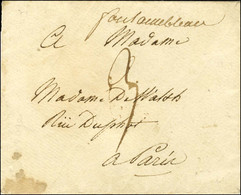 fontainebleau
A Madame
3
Madame De Walsh
Rue Duphot
a Paris